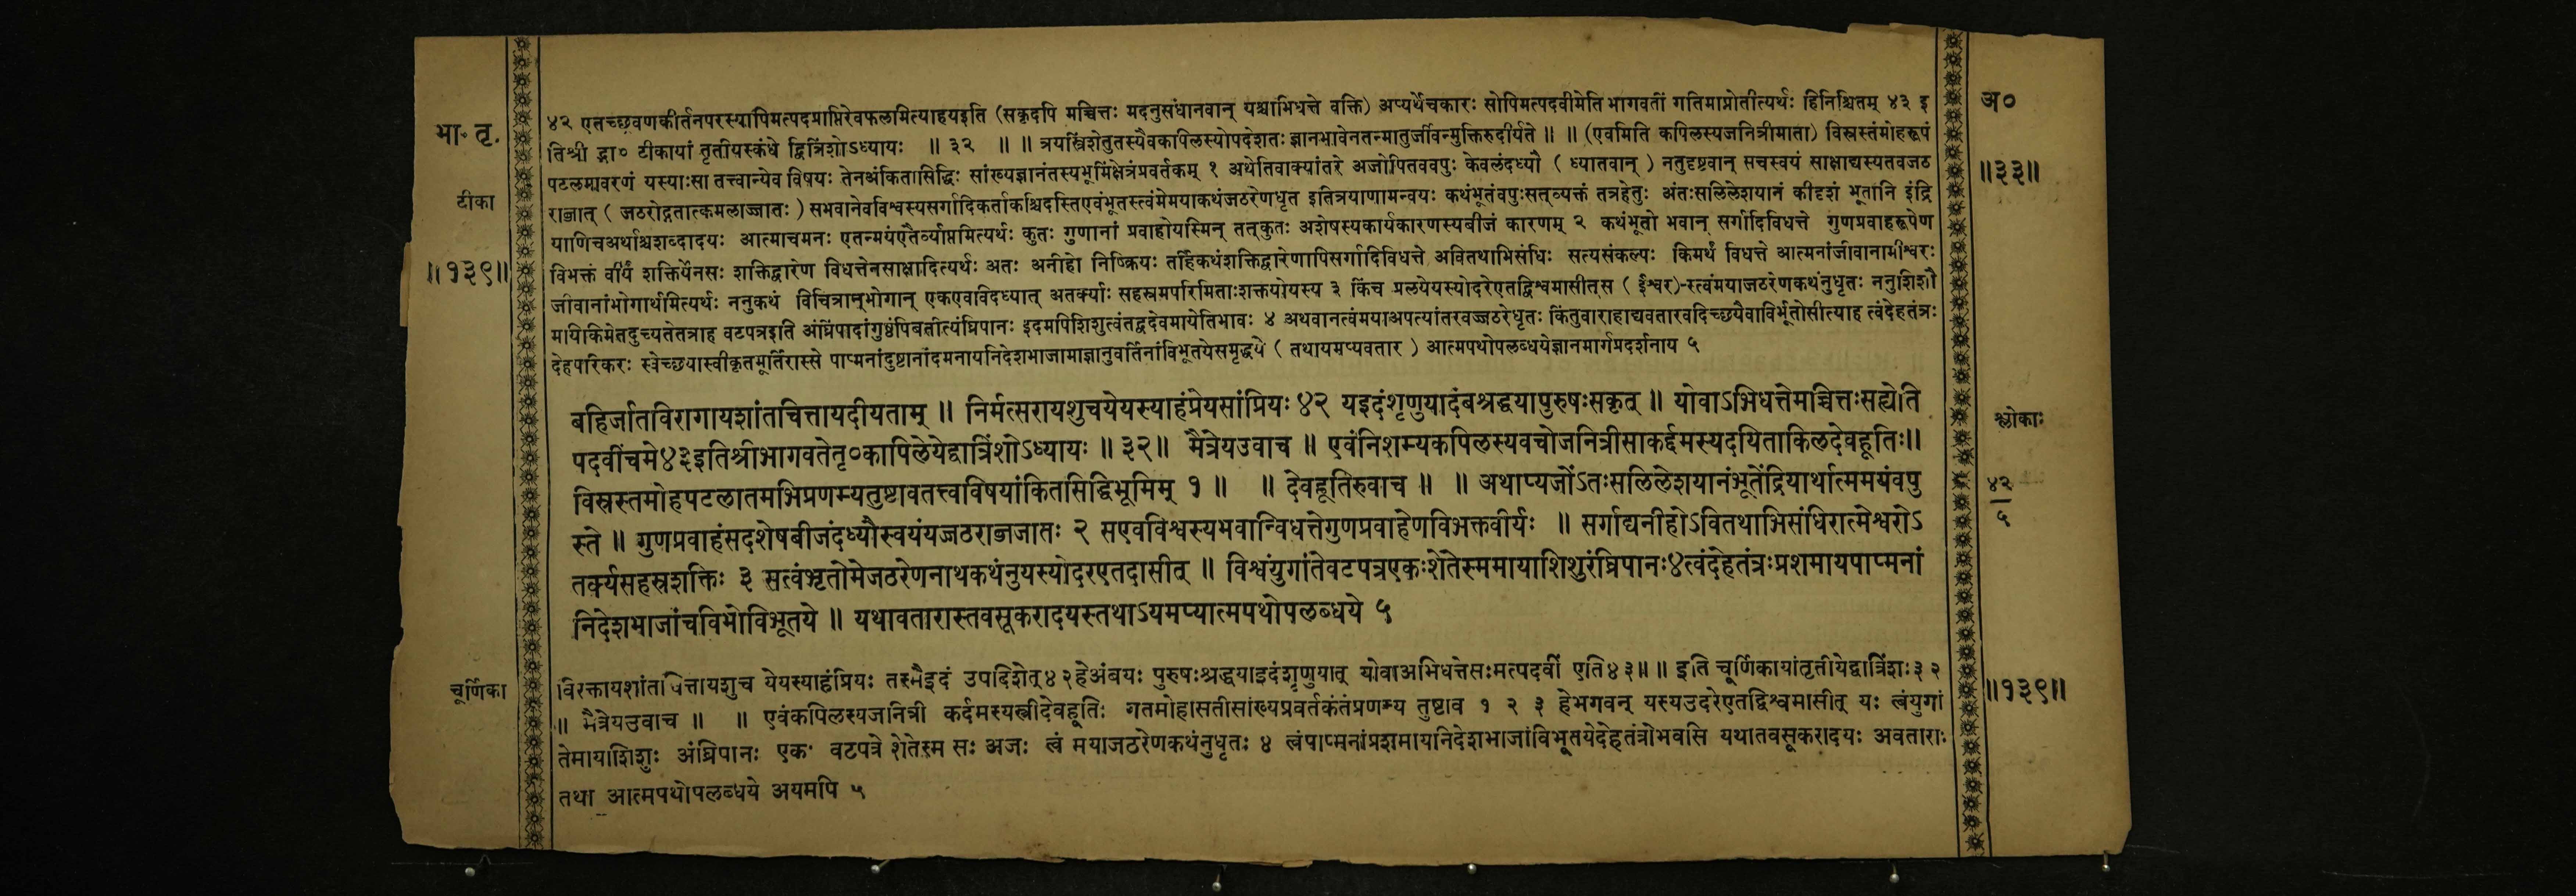 भा॰ तृ.
टीका
॥१३९॥
चूर्णिका
४२ एतच्छ्रवणकीर्तनपरस्यापिमत्पदप्राप्तिरेवफलमित्याहयइति (सकृदपि मच्चित्तः मदनुसंधानवान् यश्चाभिधत्ते वक्ति) अप्यर्थेचकारः सोपिमत्पदवीमेति भागवतीं गतिमाप्नोतीत्यर्थः हिनिश्चितम् ४३ इ
तिश्री द्भा० टीकायां तृतीयस्कंधे द्वित्रिंशोऽध्यायः ॥ ३२ ॥ ॥ त्रयस्त्रिंशेतुतस्यैवकापिलस्योपदेशतः ज्ञानभावेनतन्मातुर्जीवन्मुक्तिरुदीर्यते ॥ ॥ (एवमिति कपिलस्यजनित्रीमाता) विस्रस्तंमोहरूपं
पटलमावरणं यस्याःसा तत्त्वान्येव विषयः तेनअंकितासिद्धिः सांख्यज्ञानंतस्यभूमिंक्षेत्रंप्रवर्तकम् १ अथेतिवाक्यांतरे अजोपितववपुः केवलंदध्यौ ( ध्यातवान् ) नतुदृष्टवान् सचस्वयं साक्षाद्यस्यतवजठ
राब्जात् ( जठरोद्गतात्कमलाज्जातः ) सभवानेवविश्वस्यसर्गादिकर्ताकश्चिदस्तिएवंभूतस्त्वंमेमयाकथंजठरेणधृत इतित्रयाणामन्वयः कथंभूतंवपुःसत्व्यक्तं तत्रहेतुः अंतःसलिलेशयानं कीदृशं भूतानि इंद्रि
याणिचअर्थाश्चशब्दादयः आत्माचमनः एतन्मयंएतैर्व्याप्तमित्यर्थः कुतः गुणानां प्रवाहोयस्मिन् तत्कुतः अशेषस्यकार्यकारणस्यबीजं कारणम् २ कथंभूतो भवान् सर्गादिविधत्ते गुणप्रवाहरूपेण
विभक्तं वीर्यं शक्तिर्येनसः शक्तिद्वारेण विधत्तेनसाक्षादित्यर्थः अतः अनीहो निष्क्रियः तर्हिकथंशक्तिद्वारेणापिसर्गादिविधत्ते अवितथाभिसंधिः सत्यसंकल्पः किमर्थं विधत्ते आत्मनांजीवानामीश्वरः
जीवानांभोगार्थमित्यर्थः ननुकथं विचित्रान्भोगान् एकएवविदध्यात् अतर्क्याः सहस्रमपरिमिताःशक्तयोयस्य ३ किंच प्रलयेयस्योदरेएतद्विश्वमासीत्स ( ईश्वर)-स्त्वंमयाजठरेणकथंनुधृतः ननुशिशौ
मायिकिमेतदुच्यतेतत्राह वटपत्रइति अंघ्रिंपादांगुष्ठंपिबतीत्यंघ्रिपानः इदमपिशिशुत्वंतद्वदेवमायेतिभावः ४ अथवानत्वंमयाअपत्यांतरवज्जठरेधृतः किंतुवाराहाद्यवतारवदिच्छयैवाविर्भूतोसीत्याह त्वंदेहतंत्रः
देहपरिकरः स्वेच्छयास्वीकृतमूर्तिरास्से पाप्मनांदुष्टानांदमनायनिदेशभाजामाज्ञानुवर्तिनांविभूतयेसमृद्धये ( तथायमप्यवतार ) आत्मपथोपलब्धयेज्ञानमार्गप्रदर्शनाय ५
बहिर्जातविरागायशांतचित्तायदीयताम् ॥ निर्मत्सरायशुचयेयस्याहंप्रेयसांप्रियः ४२ यइदंशृणुयादंबश्रद्धयापुरुषःसकृत् ॥ योवाऽभिधत्तेमच्चित्तःसह्येति
पदवींचमे४३इतिश्रीभागवतेतृ०कापिलेयेद्वात्रिंशोऽध्यायः ॥ ३२॥ मैत्रेयउवाच ॥ एवंनिशम्यकपिलस्यवचोजनित्रीसाकर्द्दमस्यदयिताकिलदेवहूतिः॥
विस्रस्तमोहपटलातमभिप्रणम्यतुष्टावतत्त्वविषयांकितसिद्धिभूमिम् १ ॥ ॥ देवहूतिरुवाच ॥ ॥ अथाप्यजोंऽतःसलिलेशयानंभूतेंद्रियार्थात्ममयंवपु
स्ते ॥ गुणप्रवाहंसदशेषबीजंदध्यौस्वयंयज्जठराब्जजातः २ सएवविश्वस्यभवान्विधत्तेगुणप्रवाहेणविभक्तवीर्यः ॥ सर्गाद्यनीहोऽवितथाभिसंधिरात्मेश्वरोऽ
तर्क्यसहस्रशक्तिः ३ सत्वंभृतोमेजठरेणनाथकथंनुयस्योदरएतदासीत् ॥ विश्वंयुगांतेवटपत्रएकःशेतेस्ममायाशिशुरंघ्रिपानः४त्वंदेहतंत्रःप्रशमायपाप्मनां
निदेशभाजांचविभोविभूतये ॥ यथावतारास्तवसूकरादयस्तथाऽयमप्यात्मपथोपलब्धये ५
विरक्तायशांतचित्तायशुच येयस्याहंप्रियः तस्मैइदं उपदिशेत्४२हेअंबयः पुरुषःश्रद्धयाइदंशृणुयात् योवाअभिधत्तेसःमत्पदवीं एति४३॥ ॥ इति चूर्णिकायांतृतीयेद्वात्रिंशः३२
॥ मैत्रेयउवाच ॥ ॥ एवंकपिलस्यजनित्री कर्दमस्यस्त्रीदेवहूतिः गतमोहासतीसांख्यप्रवर्तकंतंप्रणम्य तुष्टाव १ २ ३ हेभगवन् यस्यउदरेएतद्विश्वमासीत् यः त्वंयुगां
तेमायाशिशुः अंघ्रिपानः एकः वटपत्रे शेतेस्म सः अजः त्वं मयाजठरेणकथंनुधृतः ४ त्वंपाप्मनांप्रशमायनिदेशभाजांविभूतयेदेहेतंत्रोभवसि यथातवसूकरादयः अवताराः
तथा आत्मपथोपलब्धये अयमपि ५
अ०
॥३३॥
श्लोकाः
४२
५
॥१३९॥